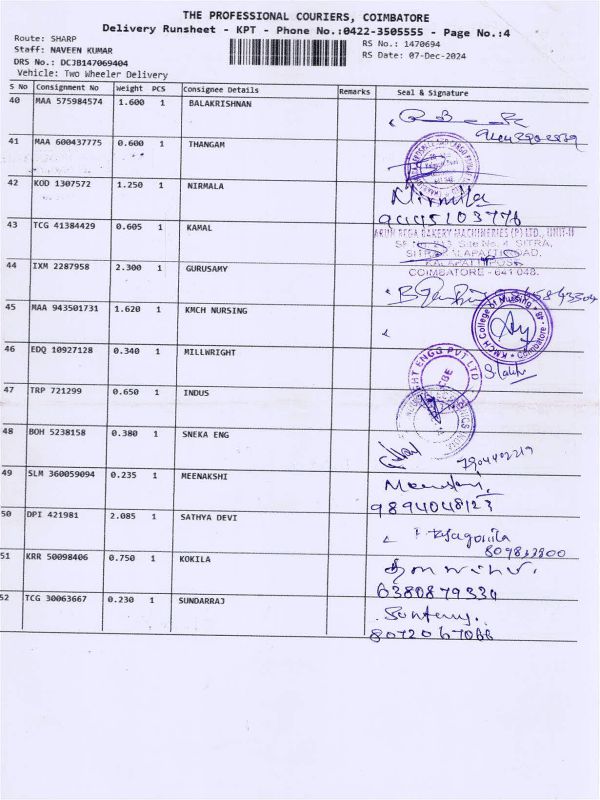 THE PROFESSIONAL COURIERS, COIMBATORE
Delivery Runsheet - KPT - Phone No.:0422-3505555 - Page No.:4
Route: SHARP
RS No.: 1470694
Staff: NAVEEN KUMAR
RS Date: 07-Dec-2024
DRS No.: DCJB147069404
Vehicle: Two Wheeler Delivery
S No Consignment No Weight PCS Consignee Details Remarks Seal & Signature
40 MAA 575984574 1.600 1 BALAKRISHNAN
41 MAA 600437775 0.600 1 THANGAM
42 KOD 1307572 1.250 1 NIRMALA Nirmila
9445103776
43 TCG 41384429 0.605 1 KAMAL
ARUN REGA BAKERY MACHINERIES (P) LTD., UNIT-II
SITRA,
KALAPATTI POST,
COIMBATORE - 641 048.
44 IXM 2287958 2.300 1 GURUSAMY
45 MAA 943501731 1.620 1 KMCH NURSING
KMCH College of Nursing Coimbatore
46 EDQ 10927128 0.340 1 MILLWRIGHT
ENGG PVT LTD
CBE
47 TRP 721299 0.650 1 INDUS
48 BOH 5238158 0.380 1 SNEKA ENG
7904402219
49 SLM 360059094 0.235 1 MEENAKSHI
9894048123
50 DPI 421981 2.085 1 SATHYA DEVI
51 KRR 50098406 0.750 1 KOKILA
6380879334
52 TCG 30063667 0.230 1 SUNDARRAJ
8072067066